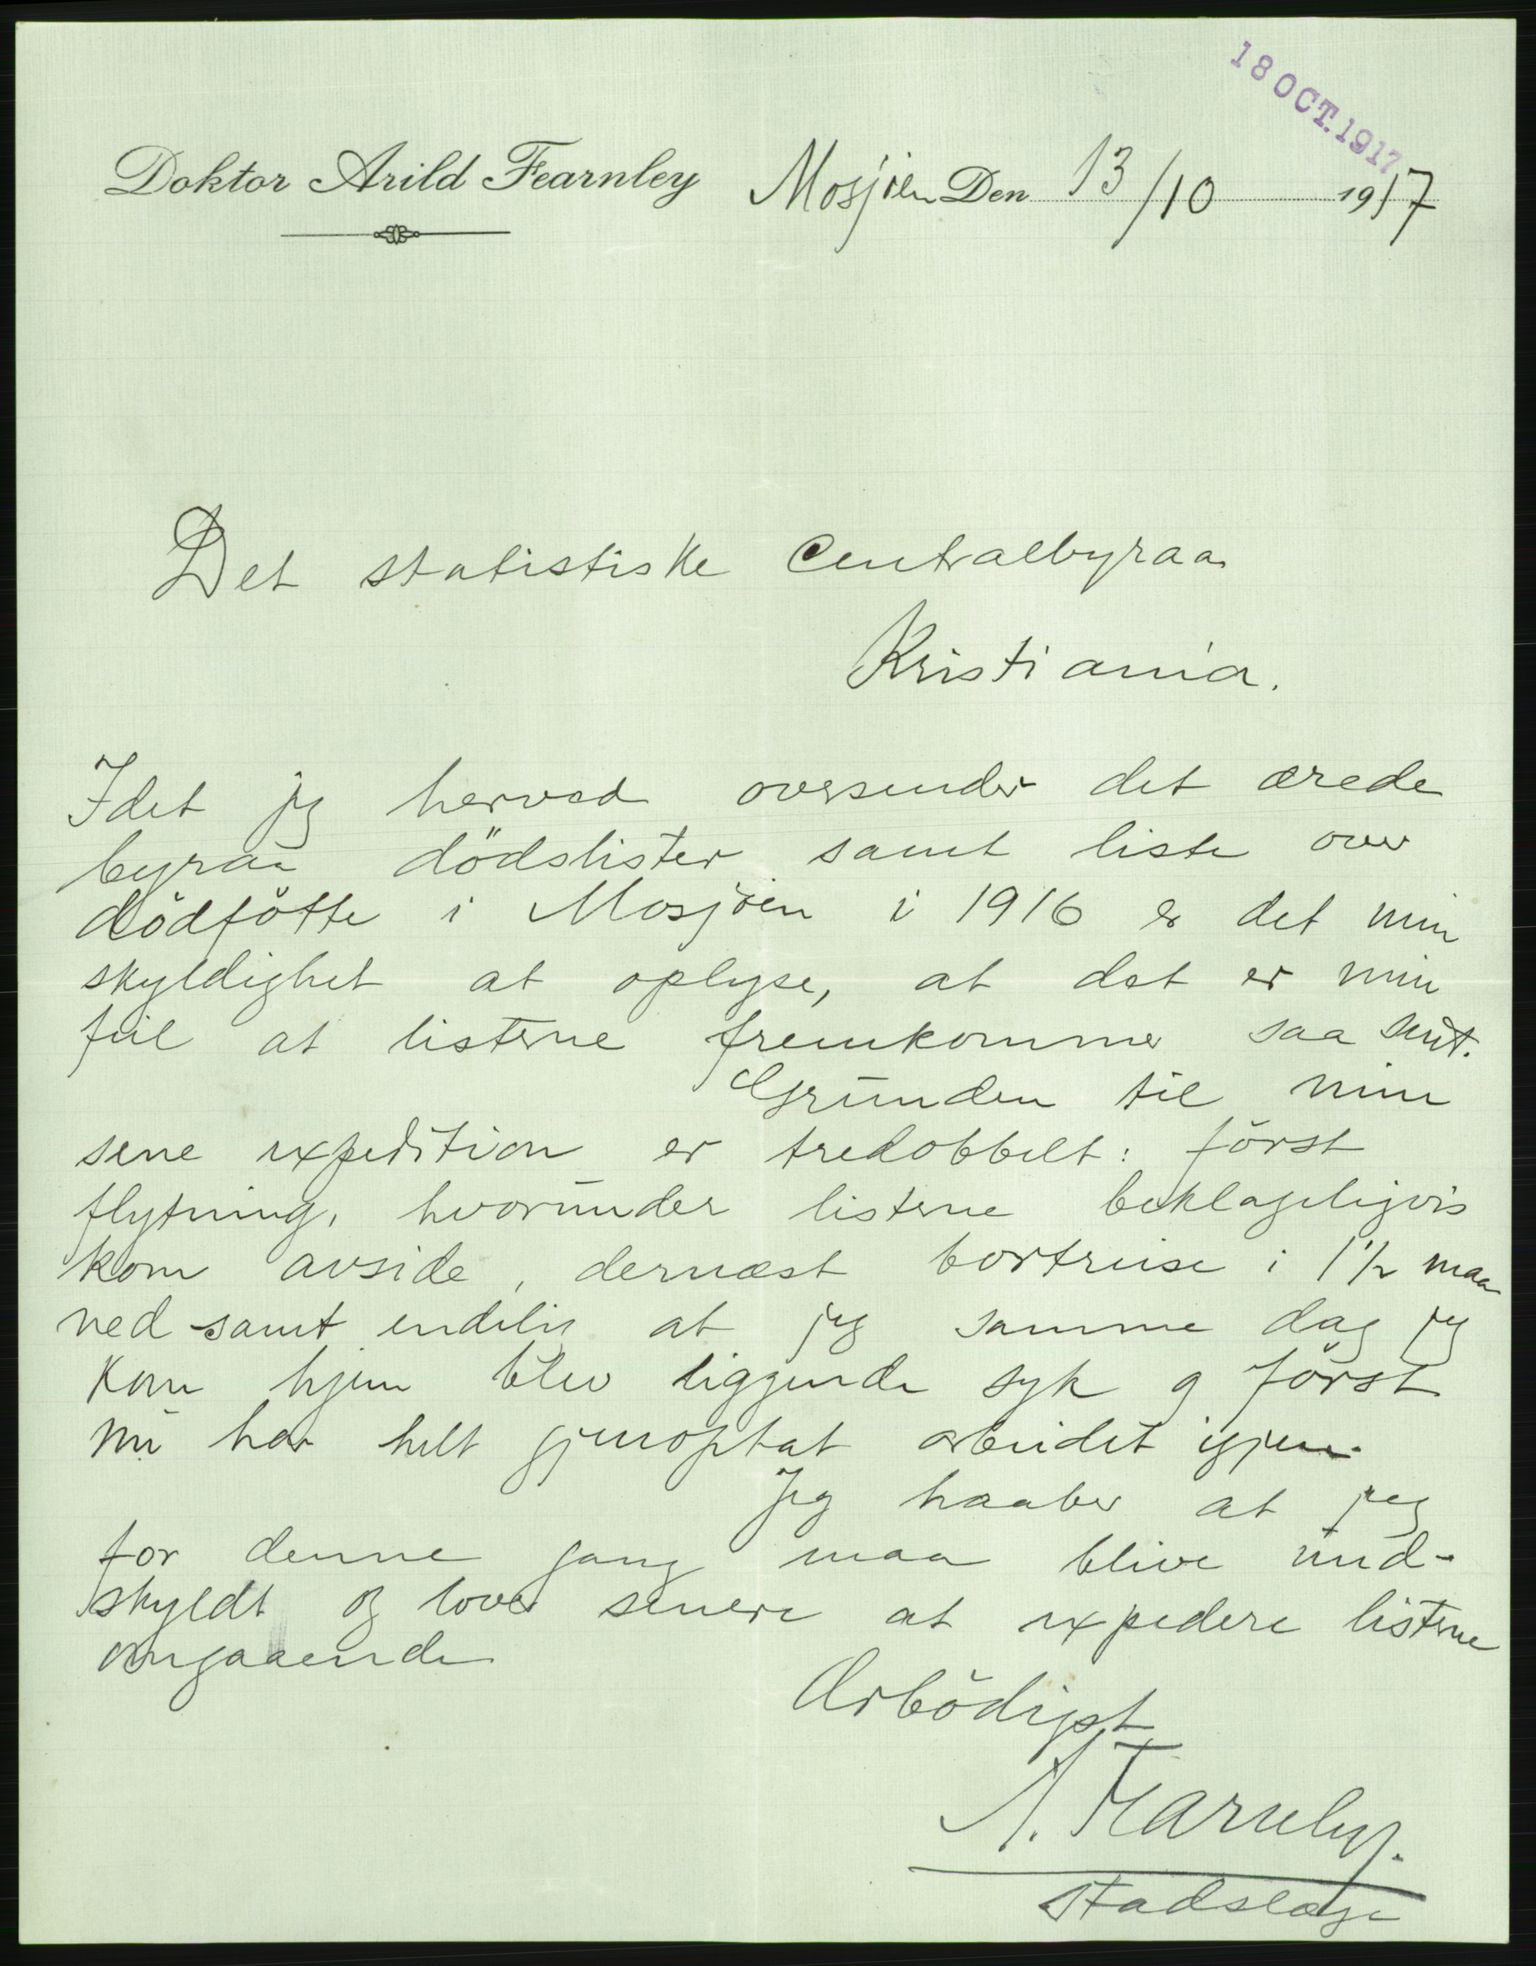 18 OCT. 1917
Doktor Arild Fearnley Mosjöen Den 13/10 1917
Det statistiske Centralbyraa
Kristiania.
Idet jeg herved oversender det ærede
byraa dödslister samt liste over
dödfötte i Mosjöen i 1916 er det min
skyldighet at oplyse, at det er min
feil at listerne fremkommer saa sent.
Grunden til min
sene expedition er tredobbelt: först
flytning, hvorunder listerne beklageligvis
kom avside, dernæst bortreise i 1 1/2 maa
ned samt endelig at jeg samme dag jeg
kom hjem blev liggende syk og först
nu har helt gjenoptat arbeidet igjen.
Jeg haaber at jeg
for denne gang maa blive und-
skyldt og lover senere at expedere listerne
omgaaende
Ærbödigst
A. Fearnley.
stadslæge